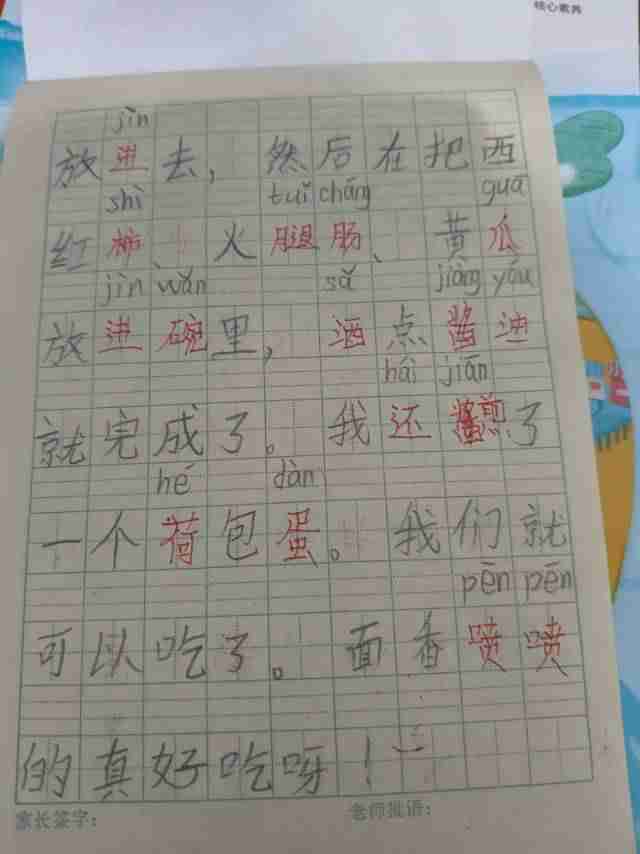 核心素养
jìn
放进去，然后在把西
shì tuǐ cháng guā
红柿、火腿肠、黄瓜
jìn wǎn sǎ jiàng yóu
放进碗里，洒点酱迪
hái jiān
就完成了。我还煎了
hé dàn
一个荷包蛋。我们就
pēn pēn
可以吃了。面香喷喷
的真好吃呀！
家长签字：
老师批语：